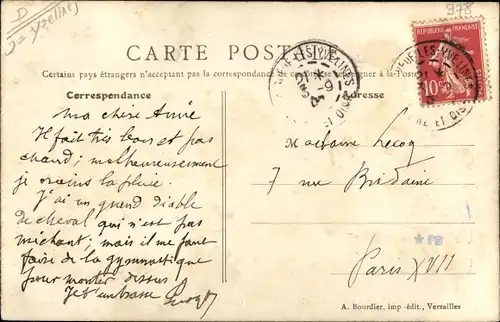 D
= Yvelines
978
CARTE POSTALE
Certains pays étrangers n'acceptant pas la correspondance se renseigner à la Poste
Correspondance
Adresse
REPUBLIQUE FRANÇAISE
POSTES
10
LES-YVELINES
9
ET OISE
LES-YVELINES
ET OISE
Ma chère Aimée
Il fait très beau et pas
chaud; malheureusement
je crains la pluie.
J'ai un grand diable
de cheval qui n'est pas
méchant; mais il me faut
faire de la gymnastique
pour monter dessus
Je t'embrasse
Madame Lecoq
7 rue Bridaine
Paris XVII
A. Bourdier, imp-édit., Versailles